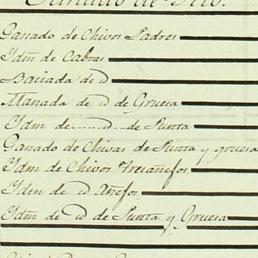 Ganado de Pelo.
Ganado de Chivos Padres
Idm de Cabras
Baciada de id
Manada de id de Gruesa
Idm de id de Punta
Ganado de Chivas de Punta y gruesa
Idm de Chivos Tresañejos
Iden de id Añejos
Idm de id de Punta y Gruesa